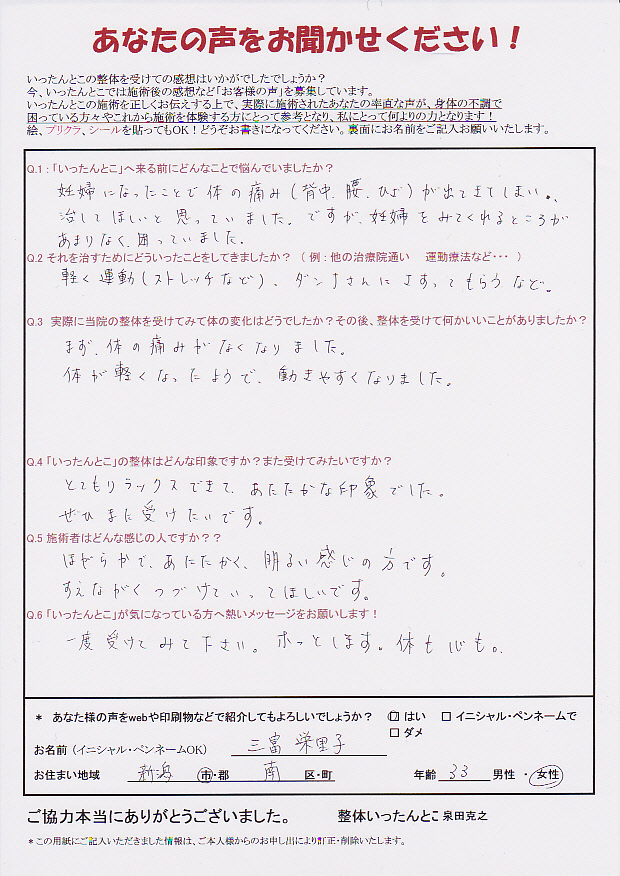 あなたの声をお聞かせください！
いったんとこの整体を受けての感想はいかがでしたでしょうか？
今、いったんとこでは施術後の感想など「お客様の声」を募集しています。
いったんとこの施術を正しくお伝えする上で、実際に施術されたあなたの率直な声が、身体の不調で
困っている方々やこれから施術を体験する方にとって参考となり、私にとって何よりの力となります！
絵、プリクラ、シールを貼ってもOK！どうぞお書きになってください。裏面にお名前をご記入お願いいたします。
Q.1：「いったんとこ」へ来る前にどんなことで悩んでいましたか？
妊婦になったことで体の痛み(背中、腰、ひざ)が出てきてしまい、
治してほしいと思っていました。ですが、妊婦をみてくれるところが
あまりなく、困っていました。
Q.2 それを治すためにどういったことをしてきましたか？（例：他の治療院通い　運動療法など・・・）
軽く運動(ストレッチなど)、ダンナさんにさすってもらうなど。
Q.3 実際に当院の整体を受けてみて体の変化はどうでしたか？その後、整体を受けて何かいいことがありましたか？
まず、体の痛みがなくなりました。
体が軽くなったようで、動きやすくなりました。
Q.4 「いったんとこ」の整体はどんな印象ですか？また受けてみたいですか？
とてもリラックスできて、あたたかな印象でした。
ぜひまた受けたいです。
Q.5 施術者はどんな感じの人ですか？？
ほがらかで、あたたかく、明るい感じの方です。
すえながくつづけていってほしいです。
Q.6 「いったんとこ」が気になっている方へ熱いメッセージをお願いします！
一度受けてみて下さい。ホッとします。体も心も。
＊ あなた様の声をwebや印刷物などで紹介してもよろしいでしょうか？ □ はい □ イニシャル・ペンネームで
□ ダメ
お名前（イニシャル・ペンネームOK） 三富 栄里子
お住まい地域 新潟 市・郡 南 区・町 年齢 33 男性 ・ 女性
ご協力本当にありがとうございました。 整体いったんとこ 泉田克之
＊この用紙にご記入いただきました情報は、ご本人様からのお申し出により訂正・削除いたします。